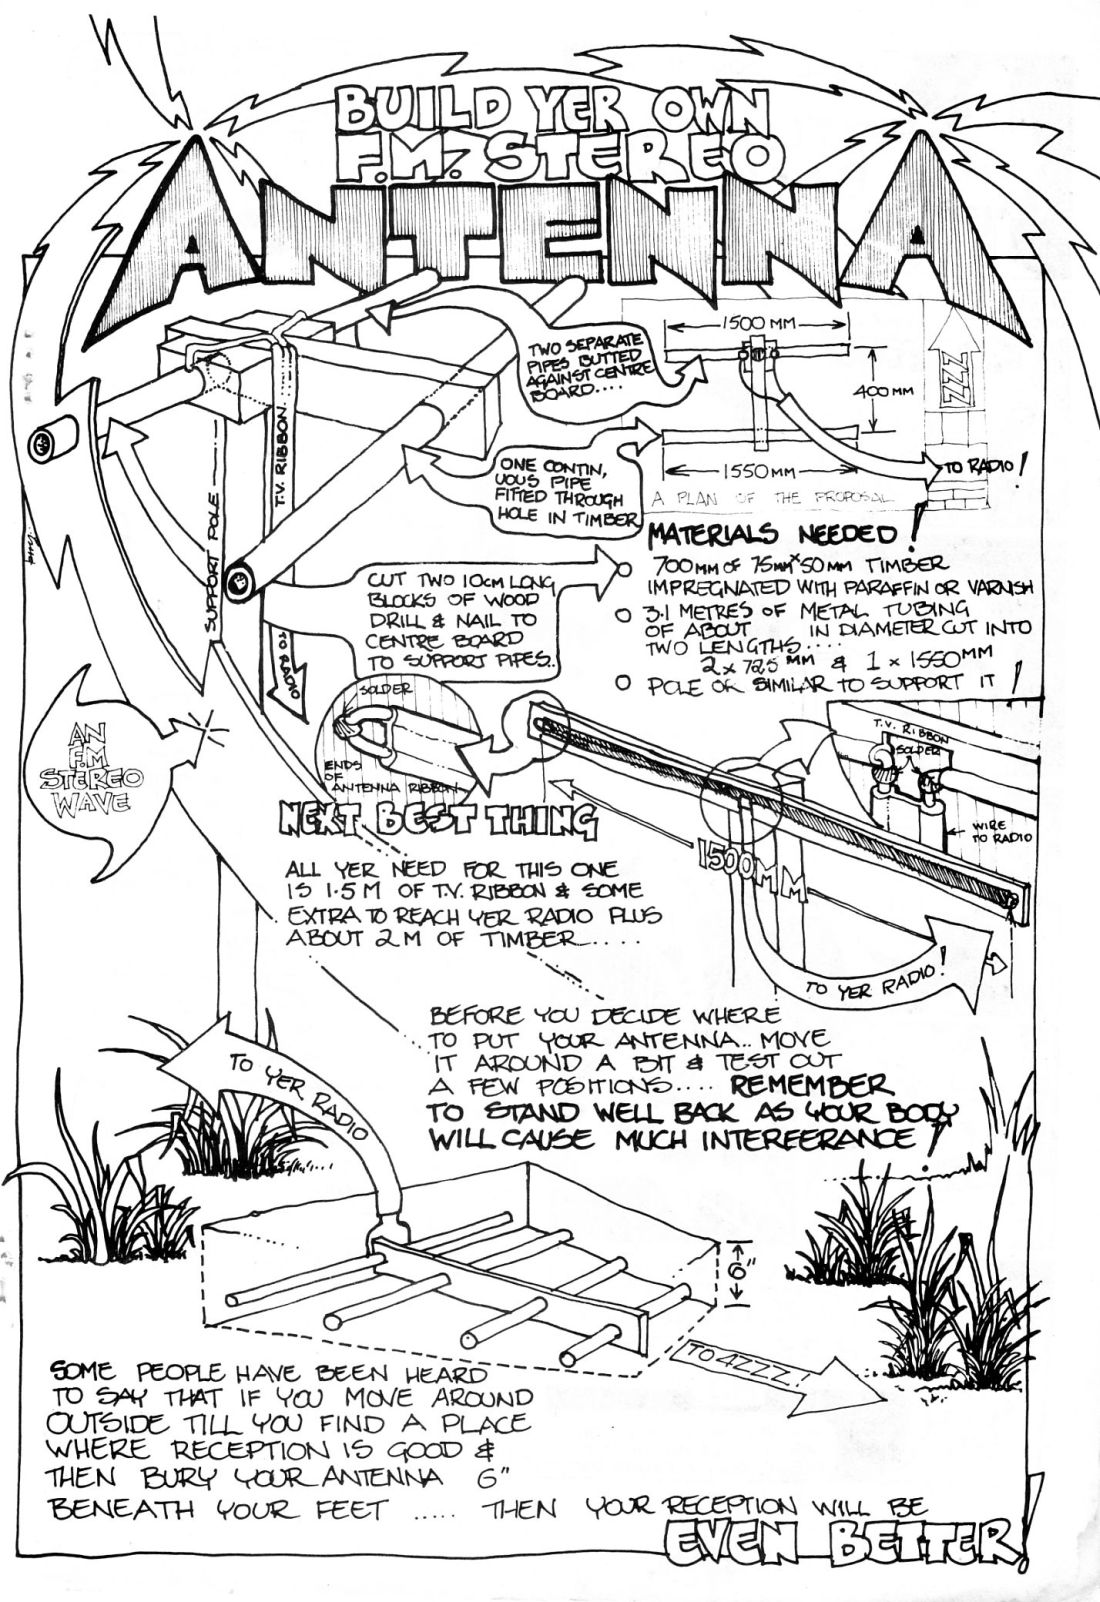 BUILD YER OWN
F.M. STEREO
ANTENNA
TWO SEPARATE
PIPES BUTTED
AGAINST CENTRE
BOARD....
1500 MM
400 MM
1550 MM
TO RADIO!
ZZZ
A PLAN OF THE PROPOSAL
ONE CONTIN,
UOUS PIPE
FITTED THROUGH
HOLE IN TIMBER
SUPPORT POLE
T.V. RIBBON
TO RADIO
CUT TWO 10CM LONG
BLOCKS OF WOOD
DRILL & NAIL TO
CENTRE BOARD
TO SUPPORT PIPES..
MATERIALS NEEDED!
700MM OF 75MM X 50MM TIMBER
IMPREGNATED WITH PARAFFIN OR VARNISH
3.1 METRES OF METAL TUBING
OF ABOUT IN DIAMETER CUT INTO
TWO LENGTHS....
2 x 725 MM & 1 x 1550MM
POLE OR SIMILAR TO SUPPORT IT!
AN
F.M
STEREO
WAVE
SOLDER
ENDS
OF
ANTENNA RIBBON
T.V. RIBBON
SOLDER
WIRE
TO RADIO
1500MM
TO YER RADIO!
NEXT BEST THING
ALL YER NEED FOR THIS ONE
IS 1.5 M OF T.V. RIBBON & SOME
EXTRA TO REACH YER RADIO PLUS
ABOUT 2M OF TIMBER.....
BEFORE YOU DECIDE WHERE
TO PUT YOUR ANTENNA.. MOVE
IT AROUND A BIT & TEST OUT
A FEW POSITIONS.... REMEMBER
TO STAND WELL BACK AS YOUR BODY
WILL CAUSE MUCH INTERFERANCE!
TO YER RADIO
6"
TO 4ZZZ!
SOME PEOPLE HAVE BEEN HEARD
TO SAY THAT IF YOU MOVE AROUND
OUTSIDE TILL YOU FIND A PLACE
WHERE RECEPTION IS GOOD &
THEN BURY YOUR ANTENNA 6"
BENEATH YOUR FEET ..... THEN YOUR RECEPTION WILL BE
EVEN BETTER!